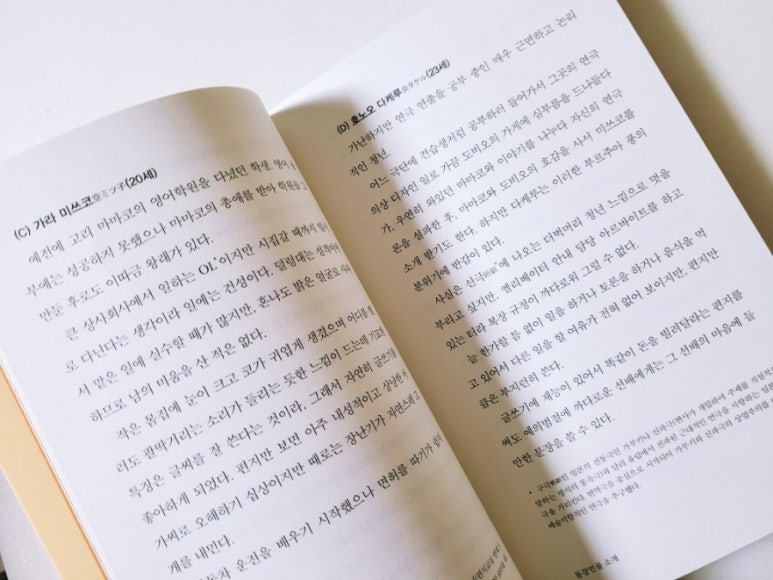 (C) 가라 미쓰코空ミツ子(20세)
예전에 고리 마마코의 영어학원을 다녔던 학생. 영어 공
부에는 성공하지 못했으나 마마코의 총애를 받아 학원을 그
만둔 후로도 이따금 왕래가 있다.
큰 상사회사에서 일하는 OL*이지만 시집갈 때까지 임시
로 다닌다는 생각이라 일에는 건성이다. 덜렁대는
서 맡은 일에 실수할 때가 많지만, 혼나도 밝은 얼굴로
하므로 남의 미움을 산 적은 없다.
작은 몸집에 눈이 크고 코가 귀엽게 생겼으며 어디를
러도 팔딱거리는 소리가 들리는 듯한 느낌이 드는데
특징은 글씨를 잘 쓴다는 것이라, 그래서 자연히 글쓰기를
좋아하게 되었다. 편지만 보면 아주 내성적이고 상냥한
가씨로 오해하기 십상이지만 때로는 장난기가 자연스레 고
개를 내민다.
운전을 배우기 시작했으나 면허를 따기가
(D) 호노오 다케루炎タケル(23세)
가난하지만 연극 연출을 공부 중인 매우 근면하고 논리
적인 청년.
어느 극단에 견습생처럼 공부하러 들어가서 그곳의 연극
의상 디자인 일로 가끔 도비오의 가게에 심부름을 드나들다
가, 우연히 와있던 마마코와 이야기를 나누다 자신의 연극
론을 설파한 후, 마마코와 도비오의 호감을 사서 미쓰코를
소개 받기도 한다. 하지만 다케루는 이러한 부르주아 풍의
분위기에 반감이 있다.
사실은 신극新劇*에 나오는 더벅머리 청년 느낌으로 멋을
부리고 싶지만, 엘리베이터 안내 담당 아르바이트를 하고
있는 터라 복장 규정이 까다로워 그럴 수 없다.
늘 한가할 틈 없이 일을 하거나 토론을 하거나 음식을 먹
고 있어서 다른 일을 할 여유가 전혀 없어 보이지만, 편지만
큼은 부지런히 쓴다.
글쓰기에 재능이 있어서 똑같이 돈을 빌려달라는 편지를
써도 예의범절에 까다로운 선배에게는 그 선배의 마음에 들
만한 문장을 쓸 수 있다.
등장인물 소개